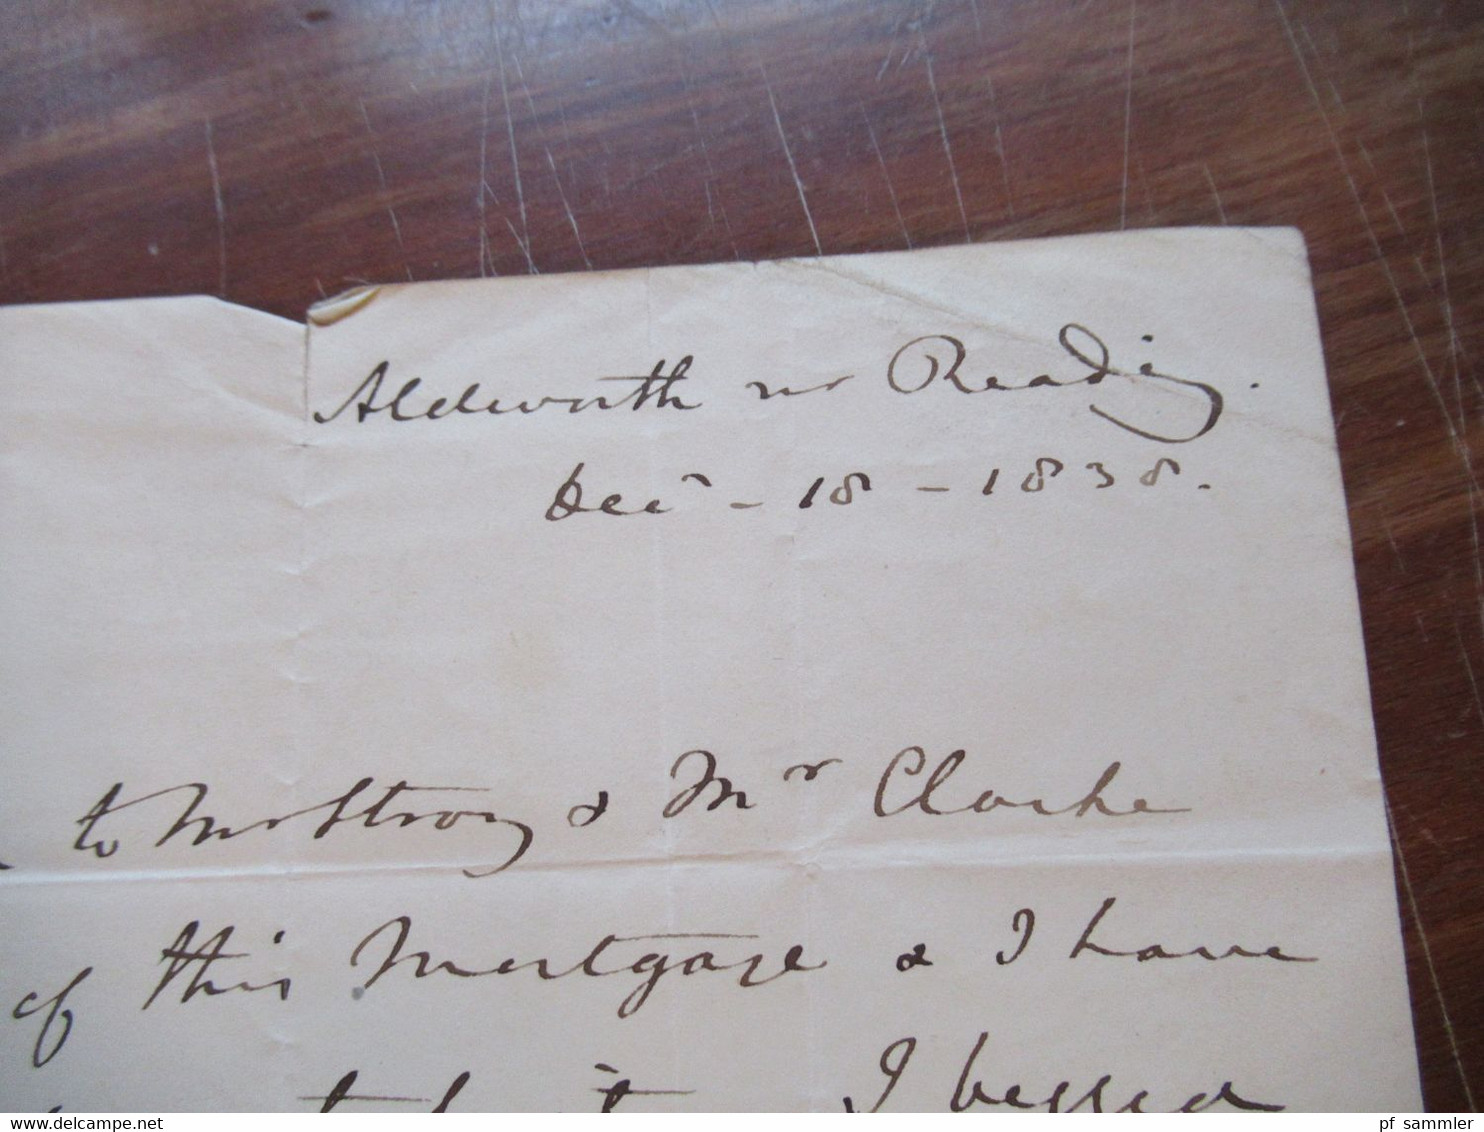 Aldworth nr Reading.
Decr - 18 - 1838.
to Mr Strong & Mr Clarke
of this Mortgage & I have
it I begged
delcampe.net
pf_sammler